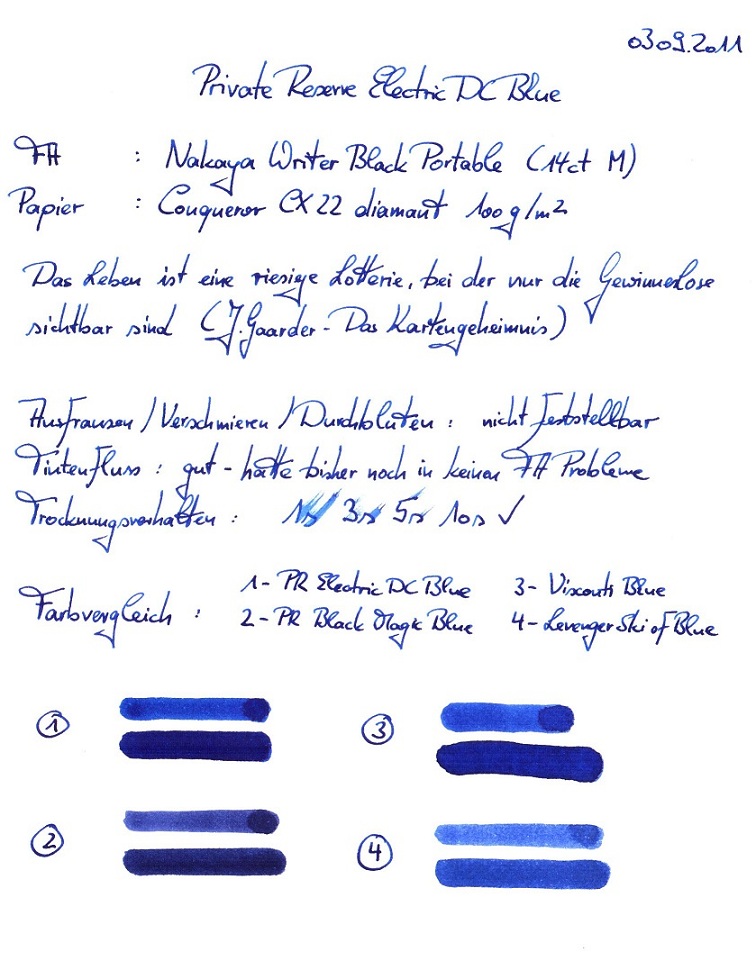 03.09.2011
Private Reserve Electric DC Blue
FH : Nakaya Writer Black Portable (14ct M)
Papier : Conqueror CX22 diamant 100g/m2
Das Leben ist eine riesige Lotterie, bei der nur die Gewinnerlose
sichtbar sind (J.Gaarder - Das Kartengeheimnis)
Ausfransen / Verschmieren / Durchbluten : nicht feststellbar
Tintenfluss : gut - hatte bisher noch in keinen FH Probleme
Trocknungsverhalten : 1s 3s 5s 10s ✓
Farbvergleich : 1- PR Electric DC Blue 3- Visconti Blue
2- PR Black Magic Blue 4- Levenger Ski of Blue
1 3
2 4